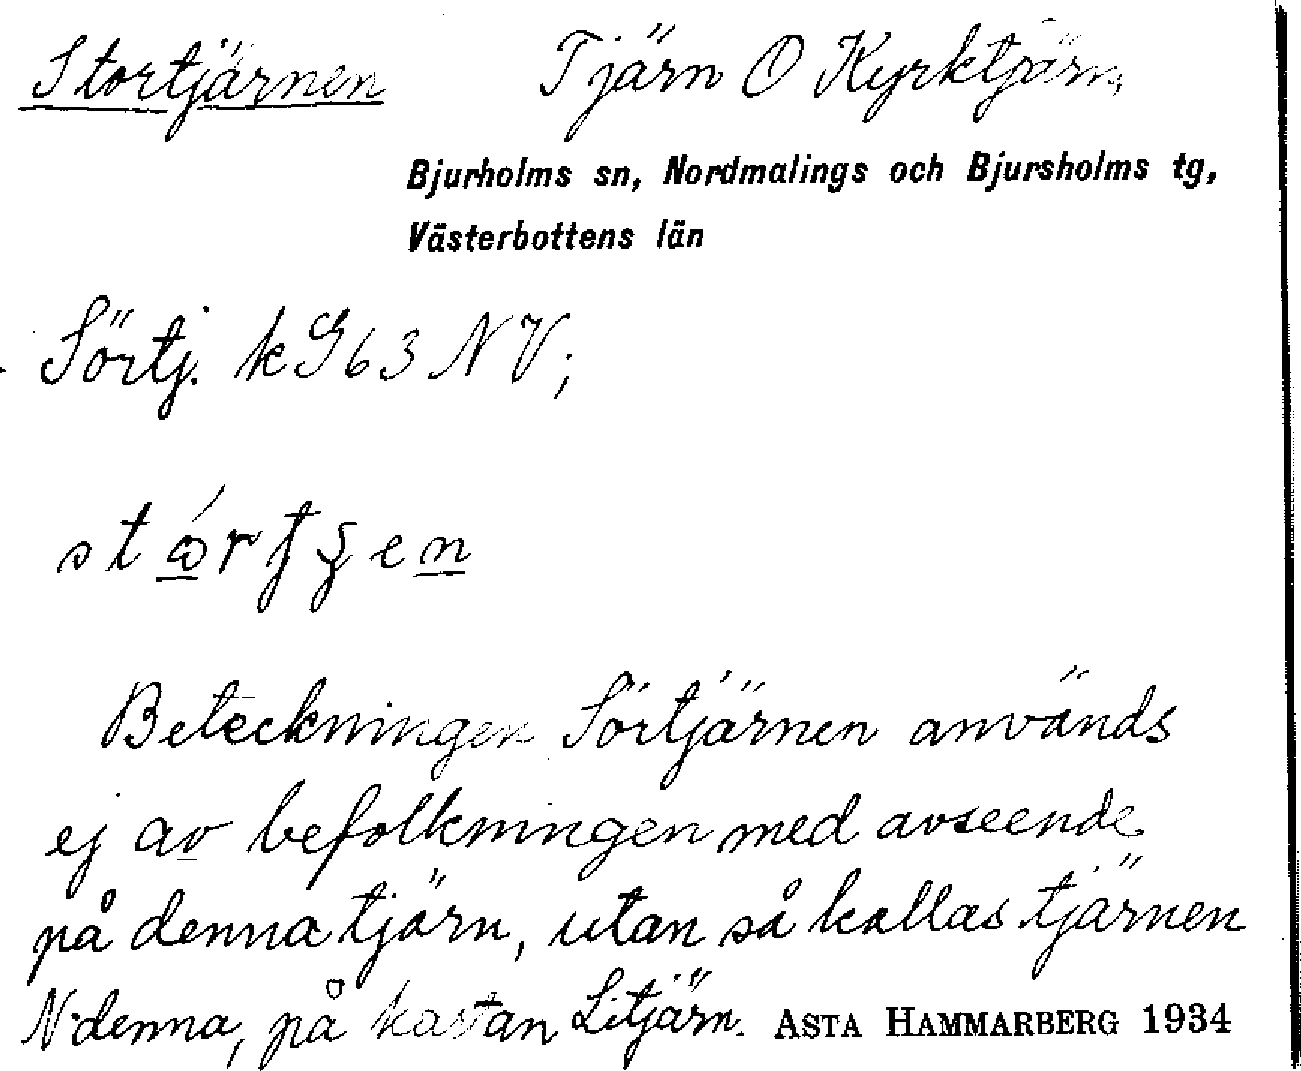 Stortjärnen Tjärn O Kyrktjärn,
Bjurholms sn, Nordmalings och Bjursholms tg,
Västerbottens län
Sörtj. k G63 NV;
Beteckningen Sörtjärnen används
ej av befolkningen med avseende
på denna tjärn, utan så kallas tjärnen
N denna, på kartan Litjärn. ASTA HAMMARBERG 1934